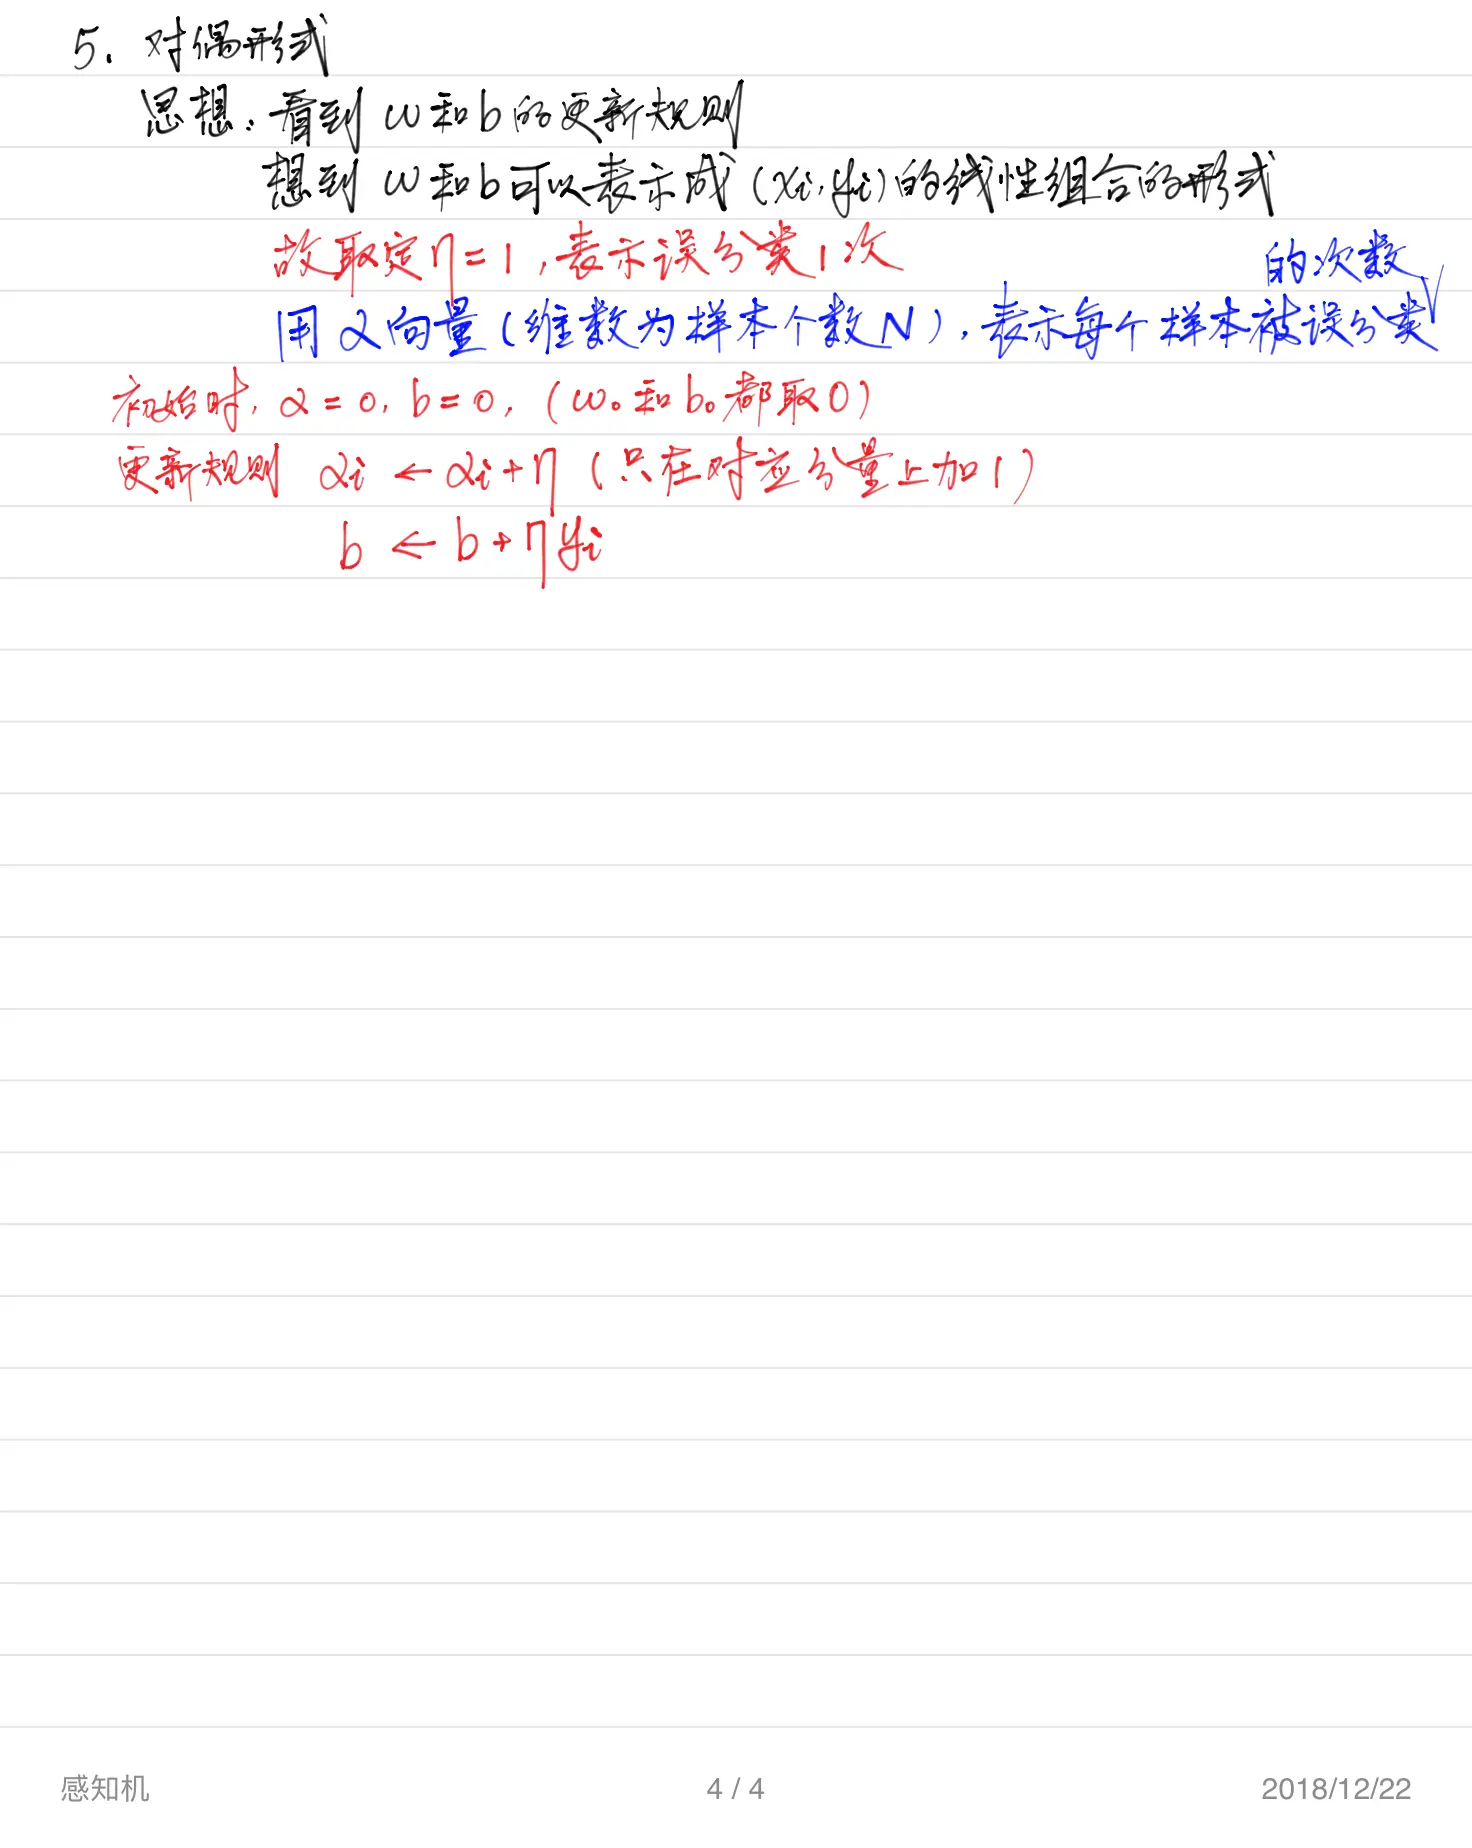 5. 对偶形式
思想: 看到 w和b的更新规则
想到 w和b可以表示成 (xi, yi)的线性组合的形式
故取定η=1, 表示误分类1次
用α向量(维数为样本个数N), 表示每个样本被误分类的次数
初始时, α=0, b=0, (w₀和b₀都取0)
更新规则 αi ← αi+η (只在对应分量上加1)
b ← b+ηyi
感知机 4 / 4 2018/12/22